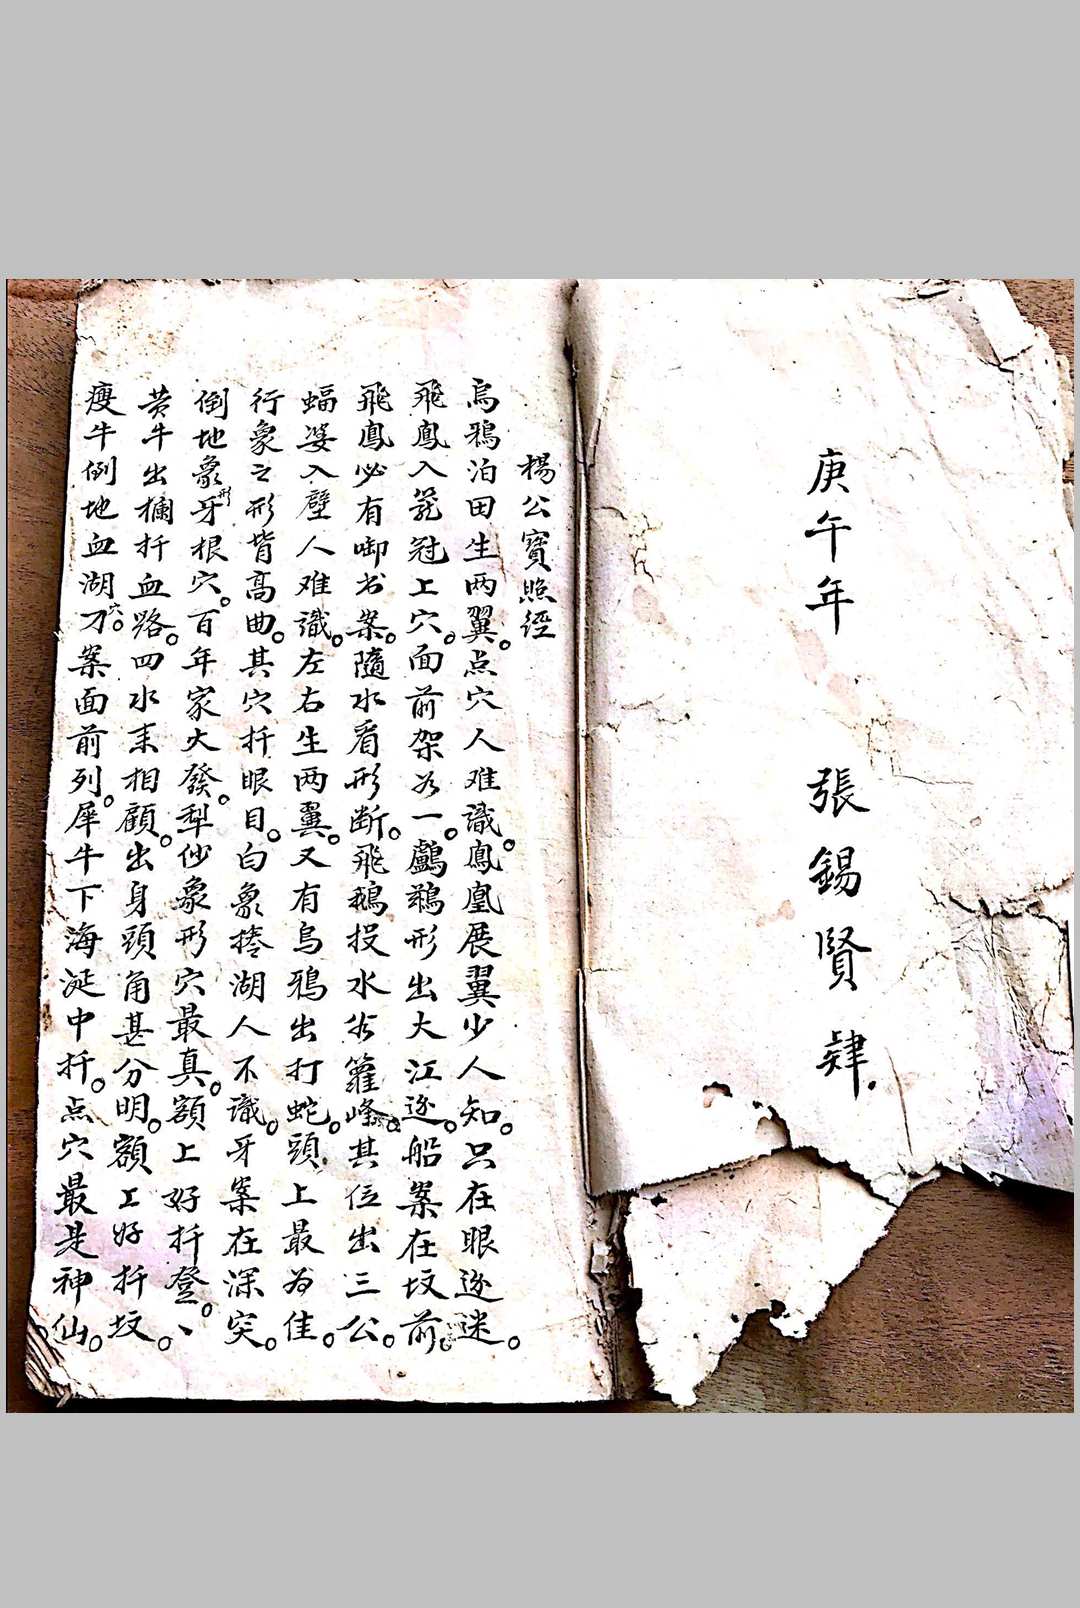 庚午年 張錫賢肄.
楊公寶照經
烏鴉泊田生两翼。点穴人难識。鳳凰展翼少人知。只在眼逐迷。
飛鳳入篭冠上穴。面前架為一。鸕鶿形出大江逐。船案在坟前。
飛鳳必有啣书案。隨水看形断。飛鵝投水出籮峰。其位出三公。
蝠婆入壁人难識。左右生两翼。又有烏鴉出打蛇。頭上最为佳。
行象之形背高曲。其穴扦眼目。白象捲湖人不識。牙案在深突。
倒地象牙形根穴。百年家大發。犁仯象形穴最真。額上好扦登。、
黄牛出欄扦血路。四水来相顧。出身頭角甚分明。額上好扦坟。
瘦牛倒地血湖刀穴。案面前列。犀牛下海涎中扦。点穴最是神仙。